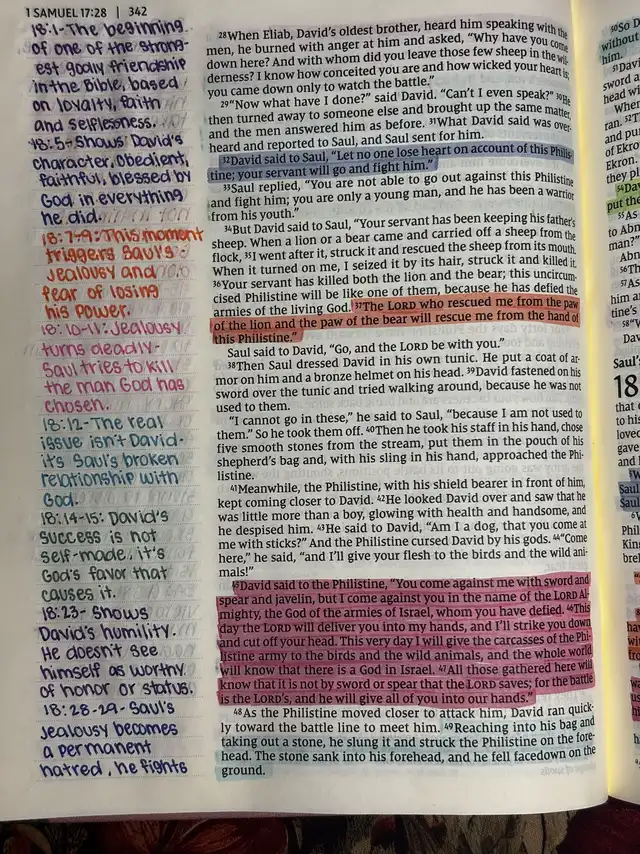 1 SAMUEL 17:28 | 342
18:1- The beginning
of one of the strong-
est godly friendship
in the Bible, based
on loyalty, faith
and selflessness.
18:5- Shows David's
character, obedient,
faithful, blessed by
God in everything
he did.
18:7-9: This moment
triggers Saul's
jealousy and
fear of losing
his power.
18:10-11: Jealousy
turns deadly-
Saul tries to kill
the man God has
chosen.
18:12- The real
issue isn't David-
it's Saul's broken
relationship with
God.
18:14-15: David's
success is not
self-made, it's
God's favor that
causes it.
18:23- Shows
David's humility.
He doesn't see
himself as worthy
of honor or status.
18:28-29- Saul's
jealousy becomes
a permanent
hatred, he fights
28When Eliab, David's oldest brother, heard him speaking with the
men, he burned with anger at him and asked, "Why have you come
down here? And with whom did you leave those few sheep in the wil-
derness? I know how conceited you are and how wicked your heart is;
you came down only to watch the battle."
29"Now what have I done?" said David. "Can't I even speak?" 30He
then turned away to someone else and brought up the same matter,
and the men answered him as before. 31What David said was over-
heard and reported to Saul, and Saul sent for him.
32David said to Saul, "Let no one lose heart on account of this Philis-
tine; your servant will go and fight him."
33Saul replied, "You are not able to go out against this Philistine
and fight him; you are only a young man, and he has been a warrior
from his youth."
34But David said to Saul, "Your servant has been keeping his father's
sheep. When a lion or a bear came and carried off a sheep from the
flock, 35I went after it, struck it and rescued the sheep from its mouth.
When it turned on me, I seized it by its hair, struck it and killed it.
36Your servant has killed both the lion and the bear; this uncircum-
cised Philistine will be like one of them, because he has defied the
armies of the living God. 37The LORD who rescued me from the paw
of the lion and the paw of the bear will rescue me from the hand of
this Philistine."
Saul said to David, "Go, and the LORD be with you."
38Then Saul dressed David in his own tunic. He put a coat of ar-
mor on him and a bronze helmet on his head. 39David fastened on his
sword over the tunic and tried walking around, because he was not
used to them.
"I cannot go in these," he said to Saul, "because I am not used to
them." So he took them off. 40Then he took his staff in his hand, chose
five smooth stones from the stream, put them in the pouch of his
shepherd's bag and, with his sling in his hand, approached the Phi-
listine.
41Meanwhile, the Philistine, with his shield bearer in front of him,
kept coming closer to David. 42He looked David over and saw that he
was little more than a boy, glowing with health and handsome, and
he despised him. 43He said to David, "Am I a dog, that you come at
me with sticks?" And the Philistine cursed David by his gods. 44"Come
here," he said, "and I'll give your flesh to the birds and the wild ani-
mals!"
45David said to the Philistine, "You come against me with sword and
spear and javelin, but I come against you in the name of the LORD Al-
mighty, the God of the armies of Israel, whom you have defied. 46This
day the LORD will deliver you into my hands, and I'll strike you down
and cut off your head. This very day I will give the carcasses of the Phi-
listine army to the birds and the wild animals, and the whole world
will know that there is a God in Israel. 47All those gathered here will
know that it is not by sword or spear that the LORD saves; for the battle
is the LORD's, and he will give all of you into our hands."
48As the Philistine moved closer to attack him, David ran quick-
ly toward the battle line to meet him. 49Reaching into his bag and
taking out a stone, he slung it and struck the Philistine on the fore-
head. The stone sank into his forehead, and he fell facedown on the
ground.
50So D
without
him.
51Davi
sword a
head wi
Wher
ran. 52T
and pu
of Ekro
Ekron.
they pl
54Dav
put the
55As
to Abn
man?"
Abn
56Th
57As
him a
tine's
58"W
Dav
Saul'
18
that
to his
loved
gave
and